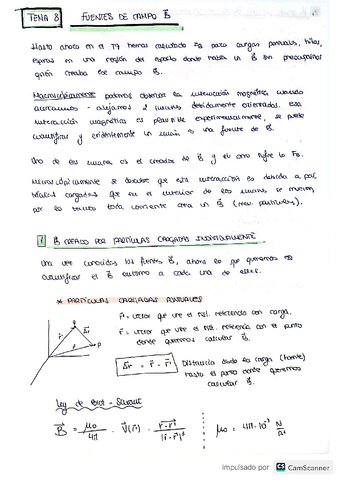 TEMA 8 FUENTES DE CAMPO B⃗
Hasta ahora en el T7 hemos calculado F_B para cargas puntuales, hilos,
espiras en una región del espacio donde había un B⃗ sin preocuparnos
quién creaba ese campo B⃗.
Macroscópicamente podemos observar la interacción magnética cuando
acercamos - alejamos 2 imanes debidamente orientados. Esa
interacción magnética es plausible experimentalmente, se puede
cuantificar y evidentemente un imán es una fuente de B⃗.
Uno de los imanes es el creador de B⃗ y el otro sufre la F_B.
Microscópicamente se descubre que esta interacción es debida a par-
tículas cargadas que en el interior de los imanes se mueven,
por lo tanto toda corriente crea un B⃗ (mov. partículas).
1 B⃗ CREADO POR PARTÍCULAS CARGADAS INDIVIDUALMENTE
Una vez conocidas las fuentes B⃗, ahora lo que queremos es
cuantificar el B⃗ entorno a cada una de ellas.
* PARTÍCULAS CARGADAS PUNTUALES
r⃗' = vector que une el sist. referencia con carga.
r⃗ = vector que une el sist. referencia con el punto
donde queremos calcular B⃗.
Δr⃗ = r⃗ - r⃗' Distancia desde la carga (fuente)
hasta el punto donde queremos
calcular B⃗.
Ley de Biot - Savart
B⃗ = μ₀/4π · V⃗(r⃗) × (r⃗ - r⃗')/|r⃗ - r⃗'|³ μ₀ = 4π·10⁻⁷ N/A²
Impulsado por CS CamScanner